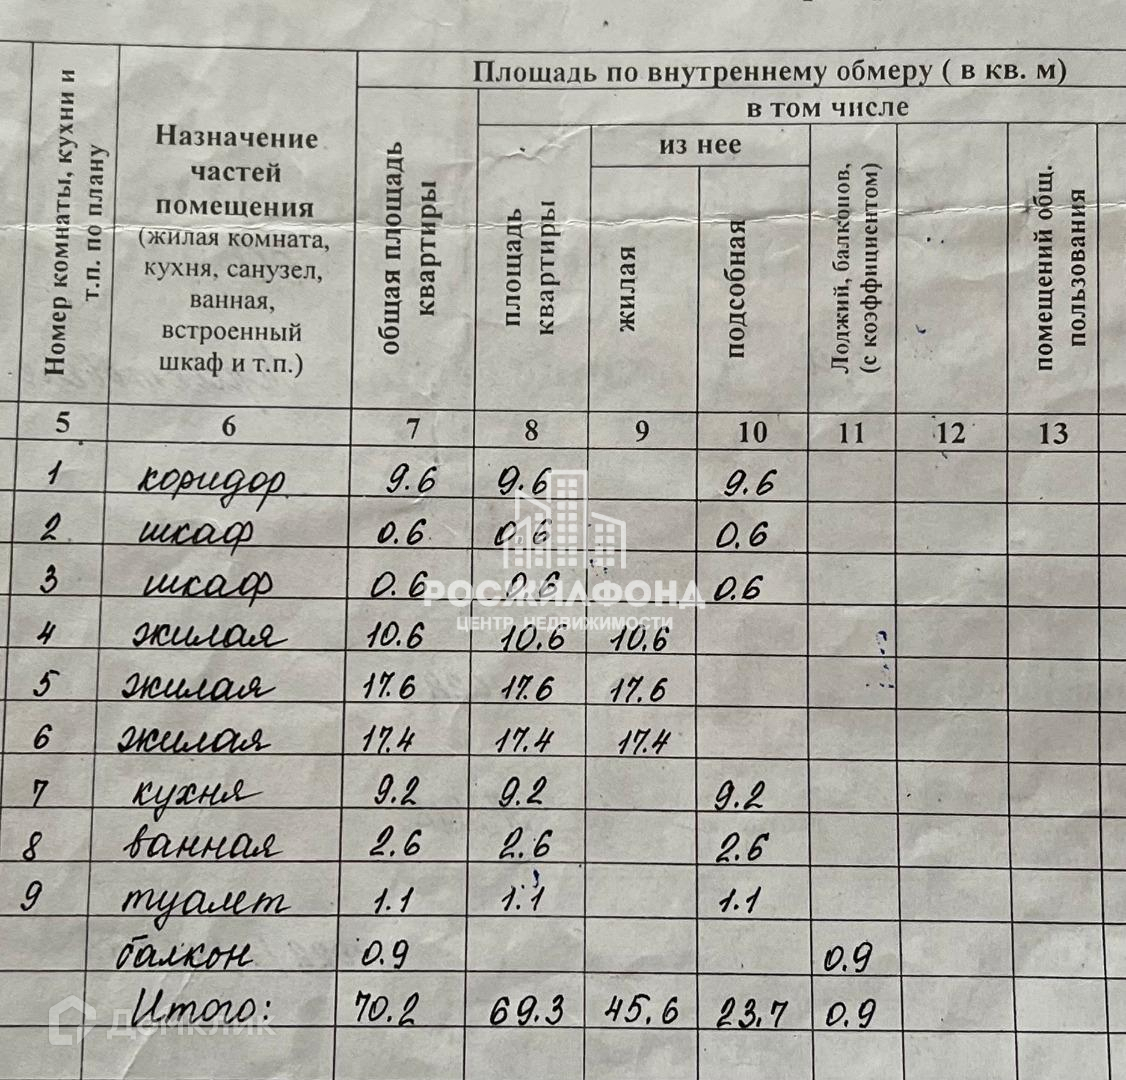 Площадь по внутреннему обмеру ( в кв. м)
в том числе
из нее
Номер комнаты, кухни и
т.п. по плану
Назначение
частей
помещения
(жилая комната,
кухня, санузел,
ванная,
встроенный
шкаф и т.п.)
общая площадь
квартиры
площадь
квартиры
жилая
подсобная
Лоджий, балконов,
(с коэффициентом)
помещений общ.
пользования
5 6 7 8 9 10 11 12 13
1 коридор 9.6 9.6 9.6
2 шкаф 0.6 0.6 0.6
3 шкаф 0.6 0.6 0.6
РОСЖИЛФОНД
ЦЕНТР НЕДВИЖИМОСТИ
4 жилая 10.6 10.6 10.6
5 жилая 17.6 17.6 17.6
6 жилая 17.4 17.4 17.4
7 кухня 9.2 9.2 9.2
8 ванная 2.6 2.6 2.6
9 туалет 1.1 1.1 1.1
балкон 0.9 0.9
Итого: 70.2 69.3 45.6 23.7 0.9
домклик